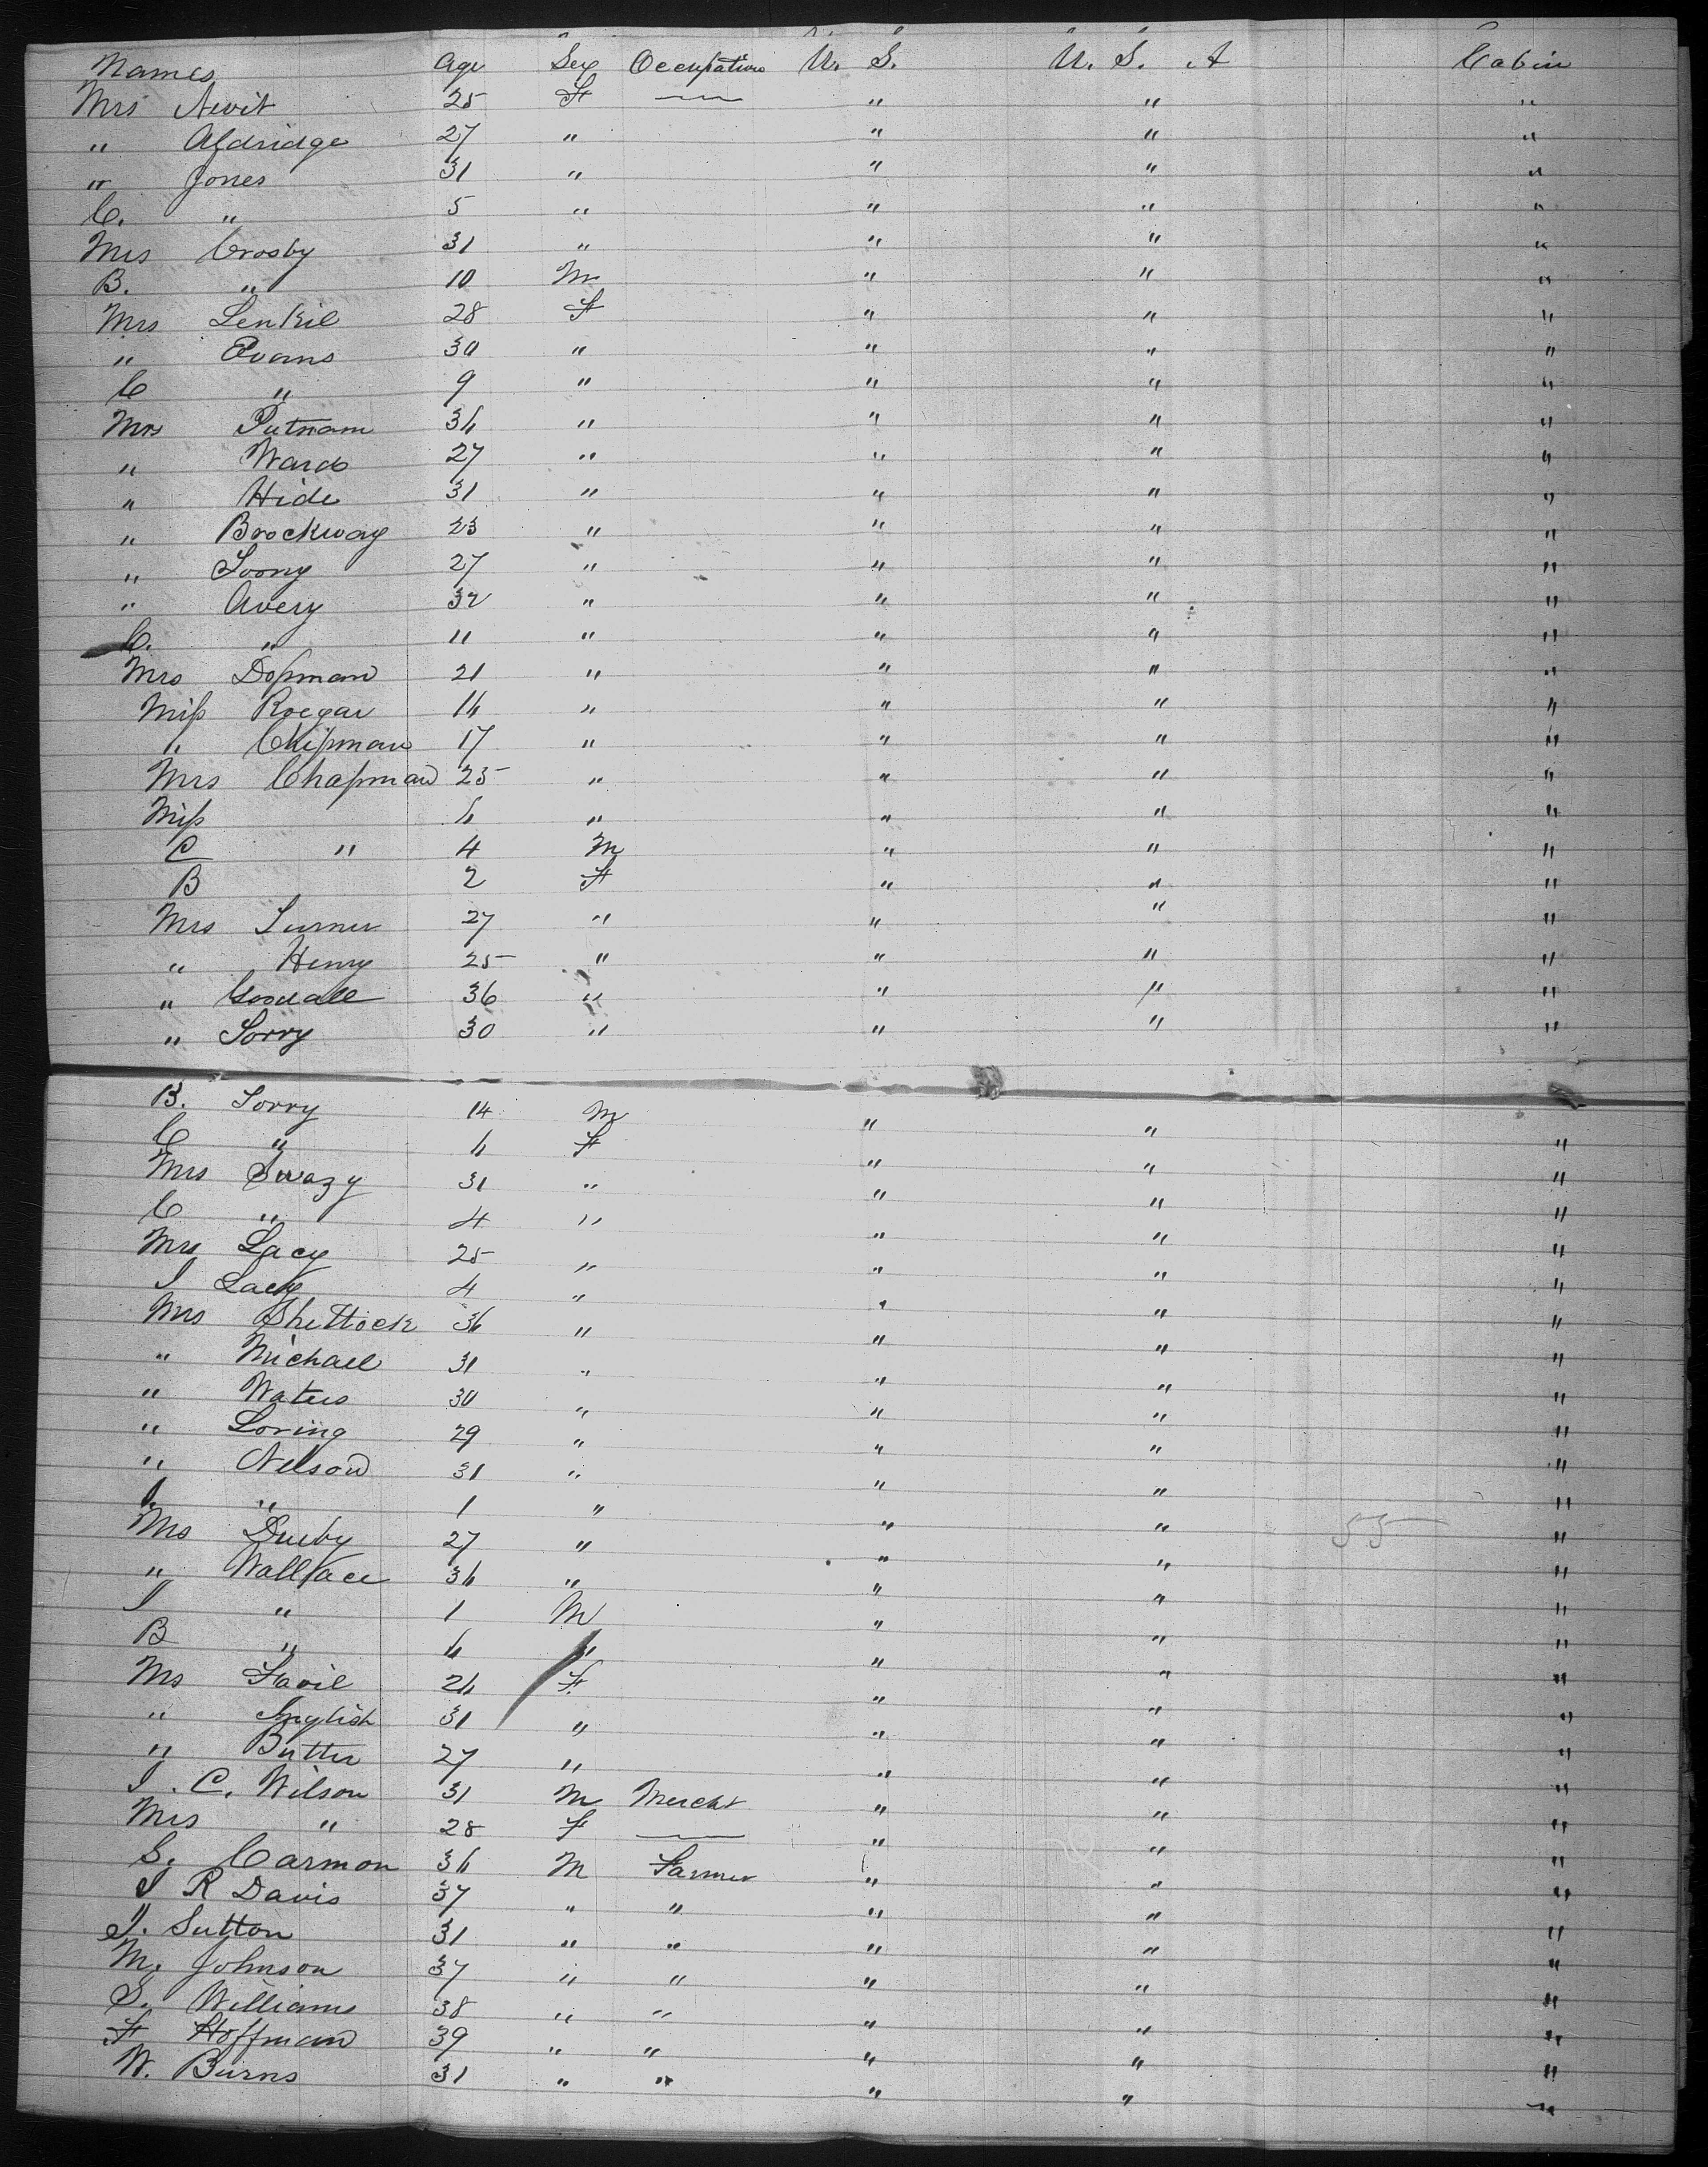 Names Age Sex Occupation U. S. U. S. A Cabin
Mrs Nevit 25 F — " " "
" Aldridge 27 " " " "
" Jones 31 " " " "
C. " 5 " " " "
Mrs Crosby 31 " " " "
B. " 10 M " " "
Mrs Lenkil 28 F " " "
" Evans 30 " " " "
C " 9 " " " "
Mrs Putnam 36 " " " "
" Ward 27 " " " "
" Hide 31 " " " "
" Brockway 23 " " " "
" 27 " " " "
" Avery 32 " " " "
C. " 11 " " " "
Mrs Dopman 21 " " " "
Miss Roegar 16 " " " "
" Chipman 17 " " " "
Mrs Chapman 25 " " " "
Miss 6 " " " "
C " 4 M " " "
B 2 F " " "
Mrs Turner 27 " " " "
" Henry 25 " " " "
" Goodall 36 " " " "
" Torry 30 " " " "
B. Torry 14 M " " "
C " 6 F " " "
Mrs Swazy 31 " " " "
C " 4 " " " "
Mrs Lacy 25 " " " "
I Lacy 4 " " " "
Mrs Shettock 36 " " " "
" Michael 31 " " " "
" Waters 30 " " " "
" Loring 29 " " " "
" Nelson 31 " " " "
I. " 1 " " " "
Mrs Durby 27 " " " 55 "
" Wallace 36 " " " "
I " 1 M " " "
B " 6 " " " "
Mrs Favil 26 F " " "
" English 31 " " " "
" Butter 27 " " " "
I. C. Wilson 31 M Mercht " " "
Mrs " 28 F — " " "
S. Carmon 36 M Farmer " " "
I R Davis 37 " " " " "
J. Sutton 31 " " " " "
M. Johnson 37 " " " " "
S. Williams 38 " " " " "
F Hoffman 39 " " " " "
W. Burns 31 " " " " "